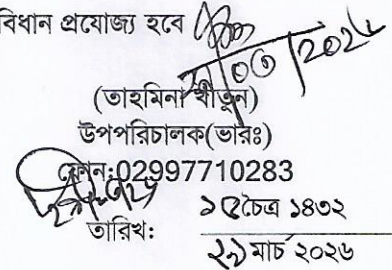 বিধান প্রযোজ্য হবে
/০৩/২০২৬
(তাহমিনা খাতুন)
উপপরিচালক(ভারঃ)
ফোন:02997710283
তারিখ:
১৫চৈত্র ১৪৩২
২৯মার্চ ২০২৬